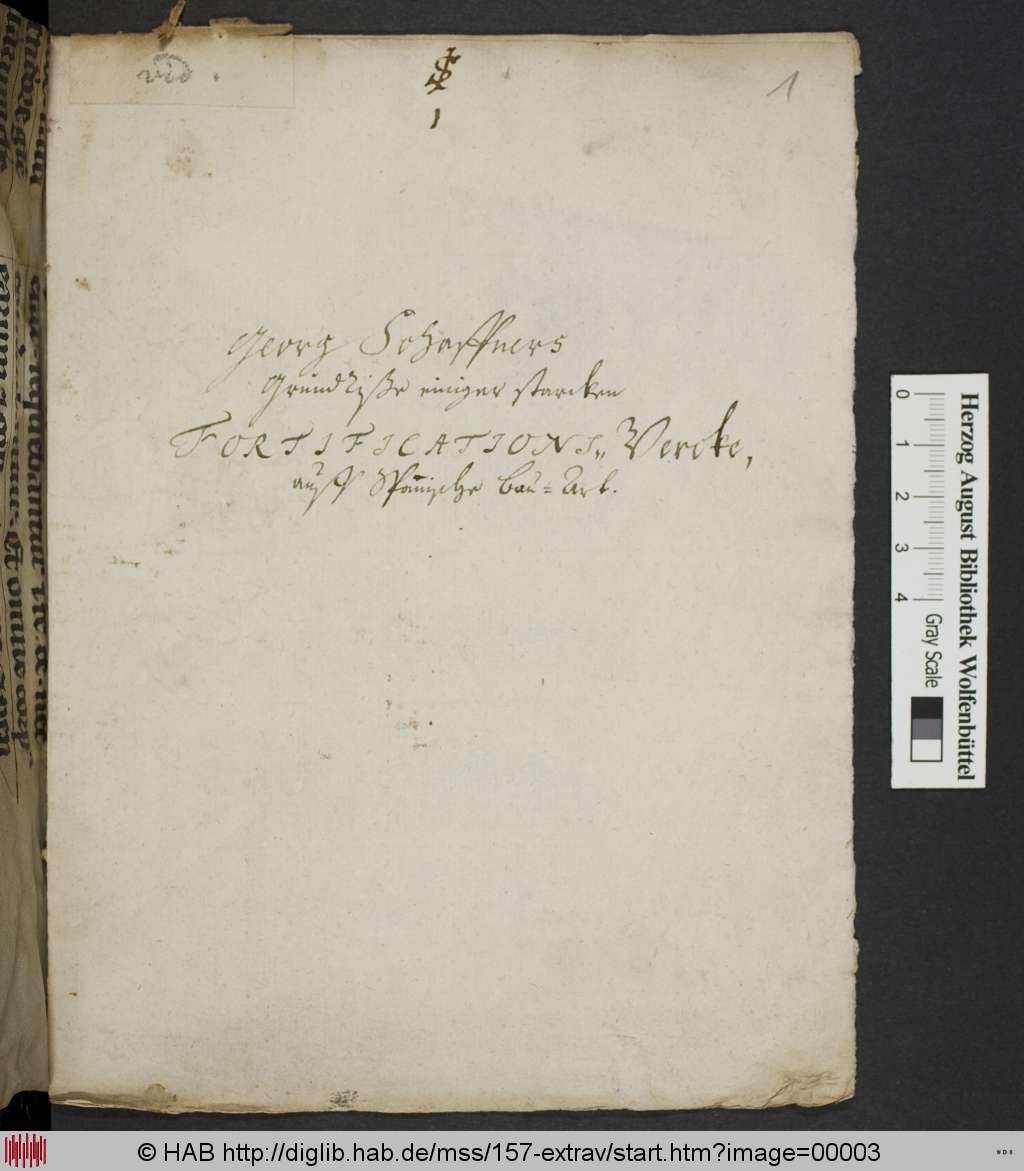 vid.
1
1
Georg Schaffners
Grund Riße einiger starcken
FORTIFICATIONS„ Wercke,
auff Spannische Bau=Art.
Herzog August Bibliothek Wolfenbüttel
0 1 2 3 4 Gray Scale
© HAB http://diglib.hab.de/mss/157-extrav/start.htm?image=00003